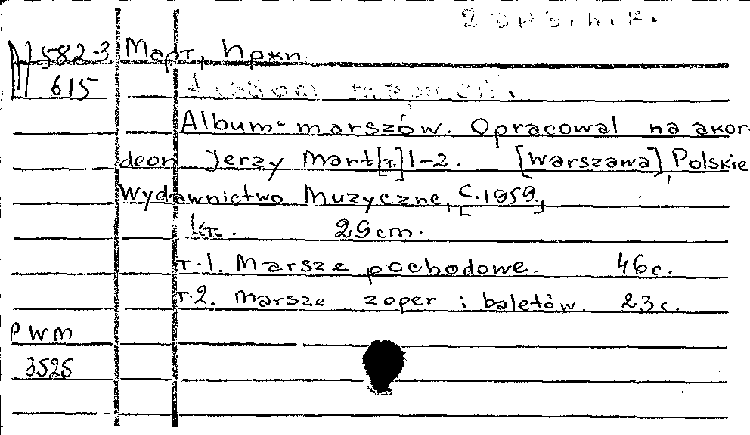 582-3 Март,
615
Album marszów. Opracował na akor-
deon Jerzy Mart [т.] 1-2. [Warszawa], Polskie
Wydawnictwo Muzyczne, [c.1959.]
29cm.
т.1. Marsze pochodowe. 46с.
т.2. Marsze z oper i baletów 23с.
PWM
3525